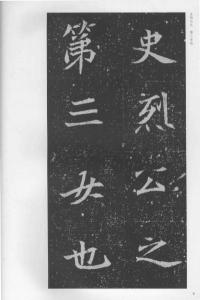 史烈公之
第三女也